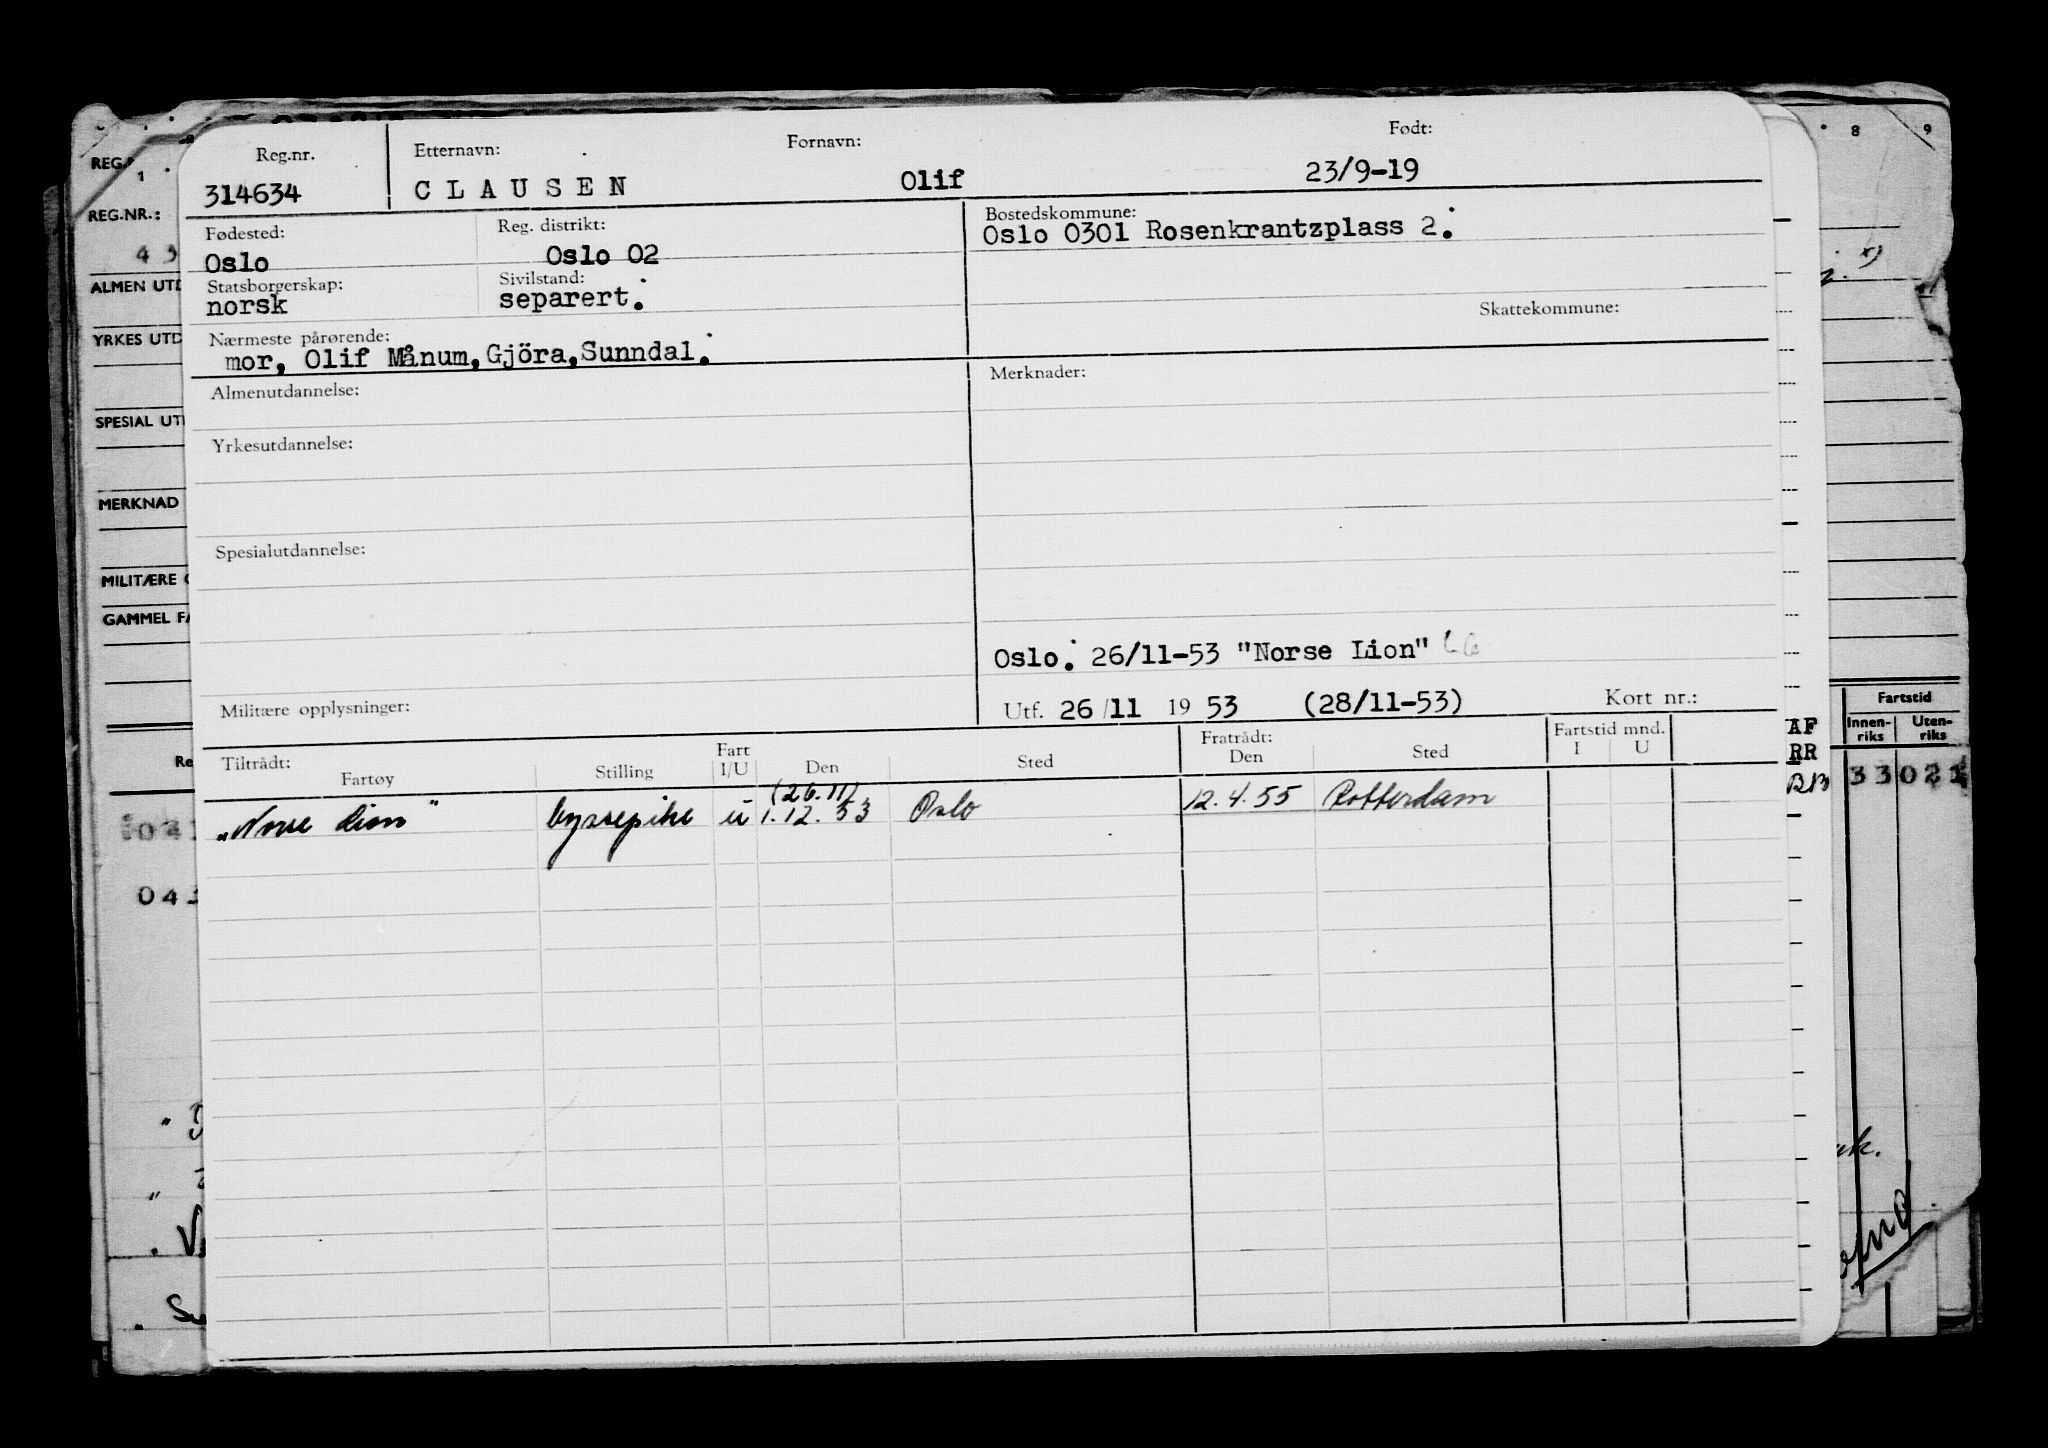 Reg.nr. Etternavn: Fornavn: Født:
314634 CLAUSEN Olif 23/9-19
Fødested: Reg. distrikt: Bostedskommune:
Oslo Oslo 02 Oslo 0301 Rosenkrantzplass 2.
Statsborgerskap: Sivilstand:
norsk separert.
Skattekommune:
Nærmeste pårørende:
mor, Olif Månum, Gjöra, Sunndal.
Almenutdannelse: Merknader:
Yrkesutdannelse:
Spesialutdannelse:
Oslo. 26/11-53 "Norse Lion"
Militære opplysninger: Utf. 26/11 1953 (28/11-53) Kort nr.:
Tiltrådt: Fart Fratrådt: Fartstid mnd.
Fartøy Stilling I/U Den Sted Den Sted I U
(26.11)
"Norse Lion" byssepike u 1.12.53 Oslo 12.4.55 Rotterdam
REG.NR.:
ALMEN UTD
YRKES UTD
SPESIAL UT
MERKNAD
MILITÆRE
GAMMEL FA
043
8 9
Fartstid
Innen-riks Uten-riks
AF
RR
33021